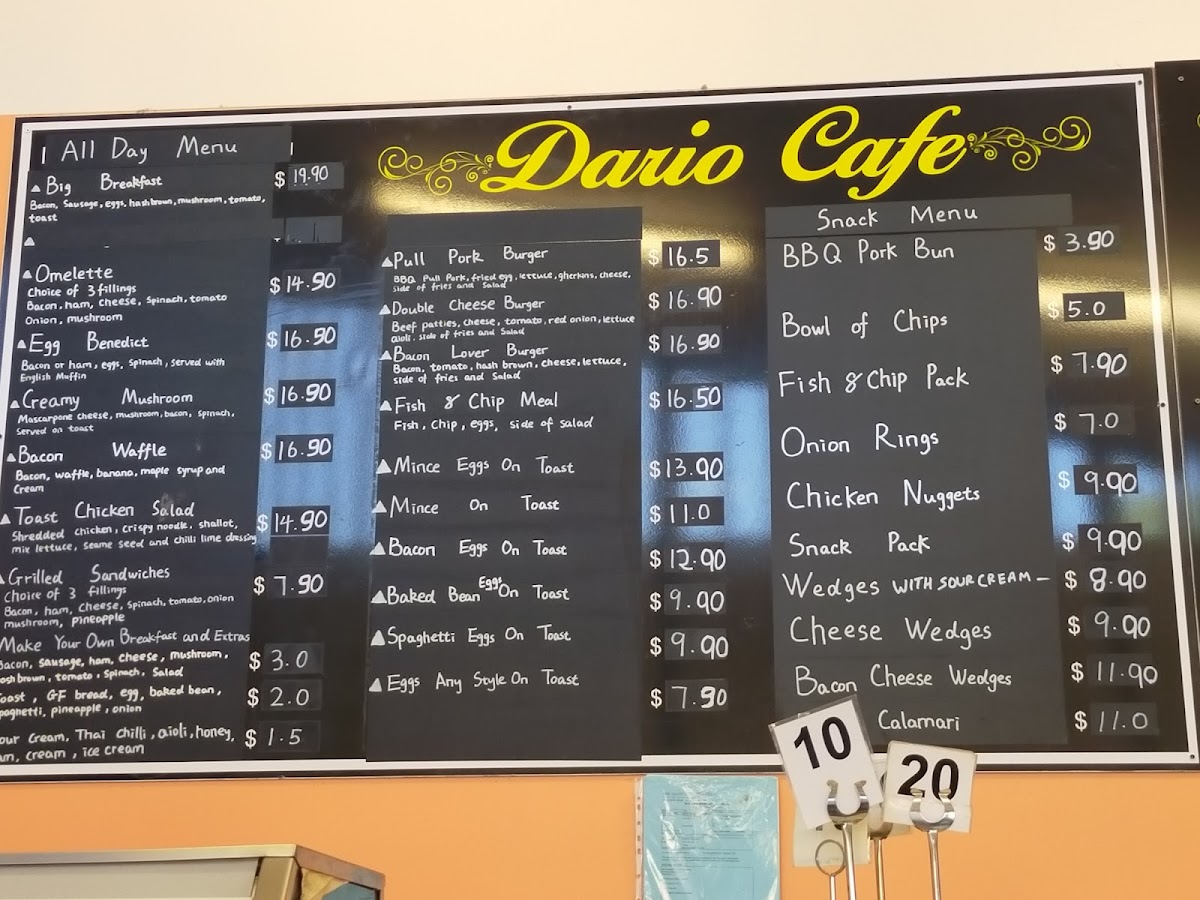 Dario Cafe
All Day Menu
Big Breakfast $ 19.90
Bacon, Sausage, eggs, hash brown, mushroom, tomato,
toast
Omelette $ 14.90
Choice of 3 fillings
Bacon, ham, cheese, Spinach, tomato
Onion, mushroom
Egg Benedict $ 16.90
Bacon or ham, eggs, Spinach, served with
English Muffin
Creamy Mushroom $ 16.90
Mascarpone cheese, mushroom, bacon, spinach,
Served on toast
Bacon Waffle $ 16.90
Bacon, waffle, banana, maple syrup and
Cream
Toast Chicken Salad $ 14.90
Shredded chicken, crispy noodle, shallot,
mix lettuce, seame seed and chilli lime dressing
Grilled Sandwiches $ 7.90
Choice of 3 fillings
Bacon, ham, Cheese, Spinach, tomato, onion
mushroom, pineapple
Make Your Own Breakfast and Extras
Bacon, sausage, ham, cheese, mushroom, $ 3.0
hash brown, tomato, spinach, Salad
Toast, GF bread, egg, baked bean, $ 2.0
spaghetti, pineapple, onion
our Cream, Thai chilli, aioli, honey, $ 1.5
am, cream, ice cream
Pull Pork Burger $ 16.5
BBQ Pull Pork, fried egg, lettuce, gherkins, cheese,
side of fries and Salad
Double Cheese Burger $ 16.90
Beef patties, cheese, tomato, red onion, lettuce
aioli, side of fries and Salad
Bacon Lover Burger $ 16.90
Bacon, tomato, hash brown, cheese, lettuce,
side of fries and Salad
Fish & Chip Meal $ 16.50
Fish, chip, eggs, side of salad
Mince Eggs On Toast $ 13.90
Mince On Toast $ 11.0
Bacon Eggs On Toast $ 12.90
Baked Bean Eggs On Toast $ 9.90
Spaghetti Eggs On Toast $ 9.90
Eggs Any Style On Toast $ 7.90
Snack Menu
BBQ Pork Bun $ 3.90
Bowl of Chips $ 5.0
Fish & Chip Pack $ 7.90
Onion Rings $ 7.0
Chicken Nuggets $ 9.90
Snack Pack $ 9.90
Wedges WITH SOUR CREAM - $ 8.90
Cheese Wedges $ 9.90
Bacon Cheese Wedges $ 11.90
Calamari $ 11.0
10
20